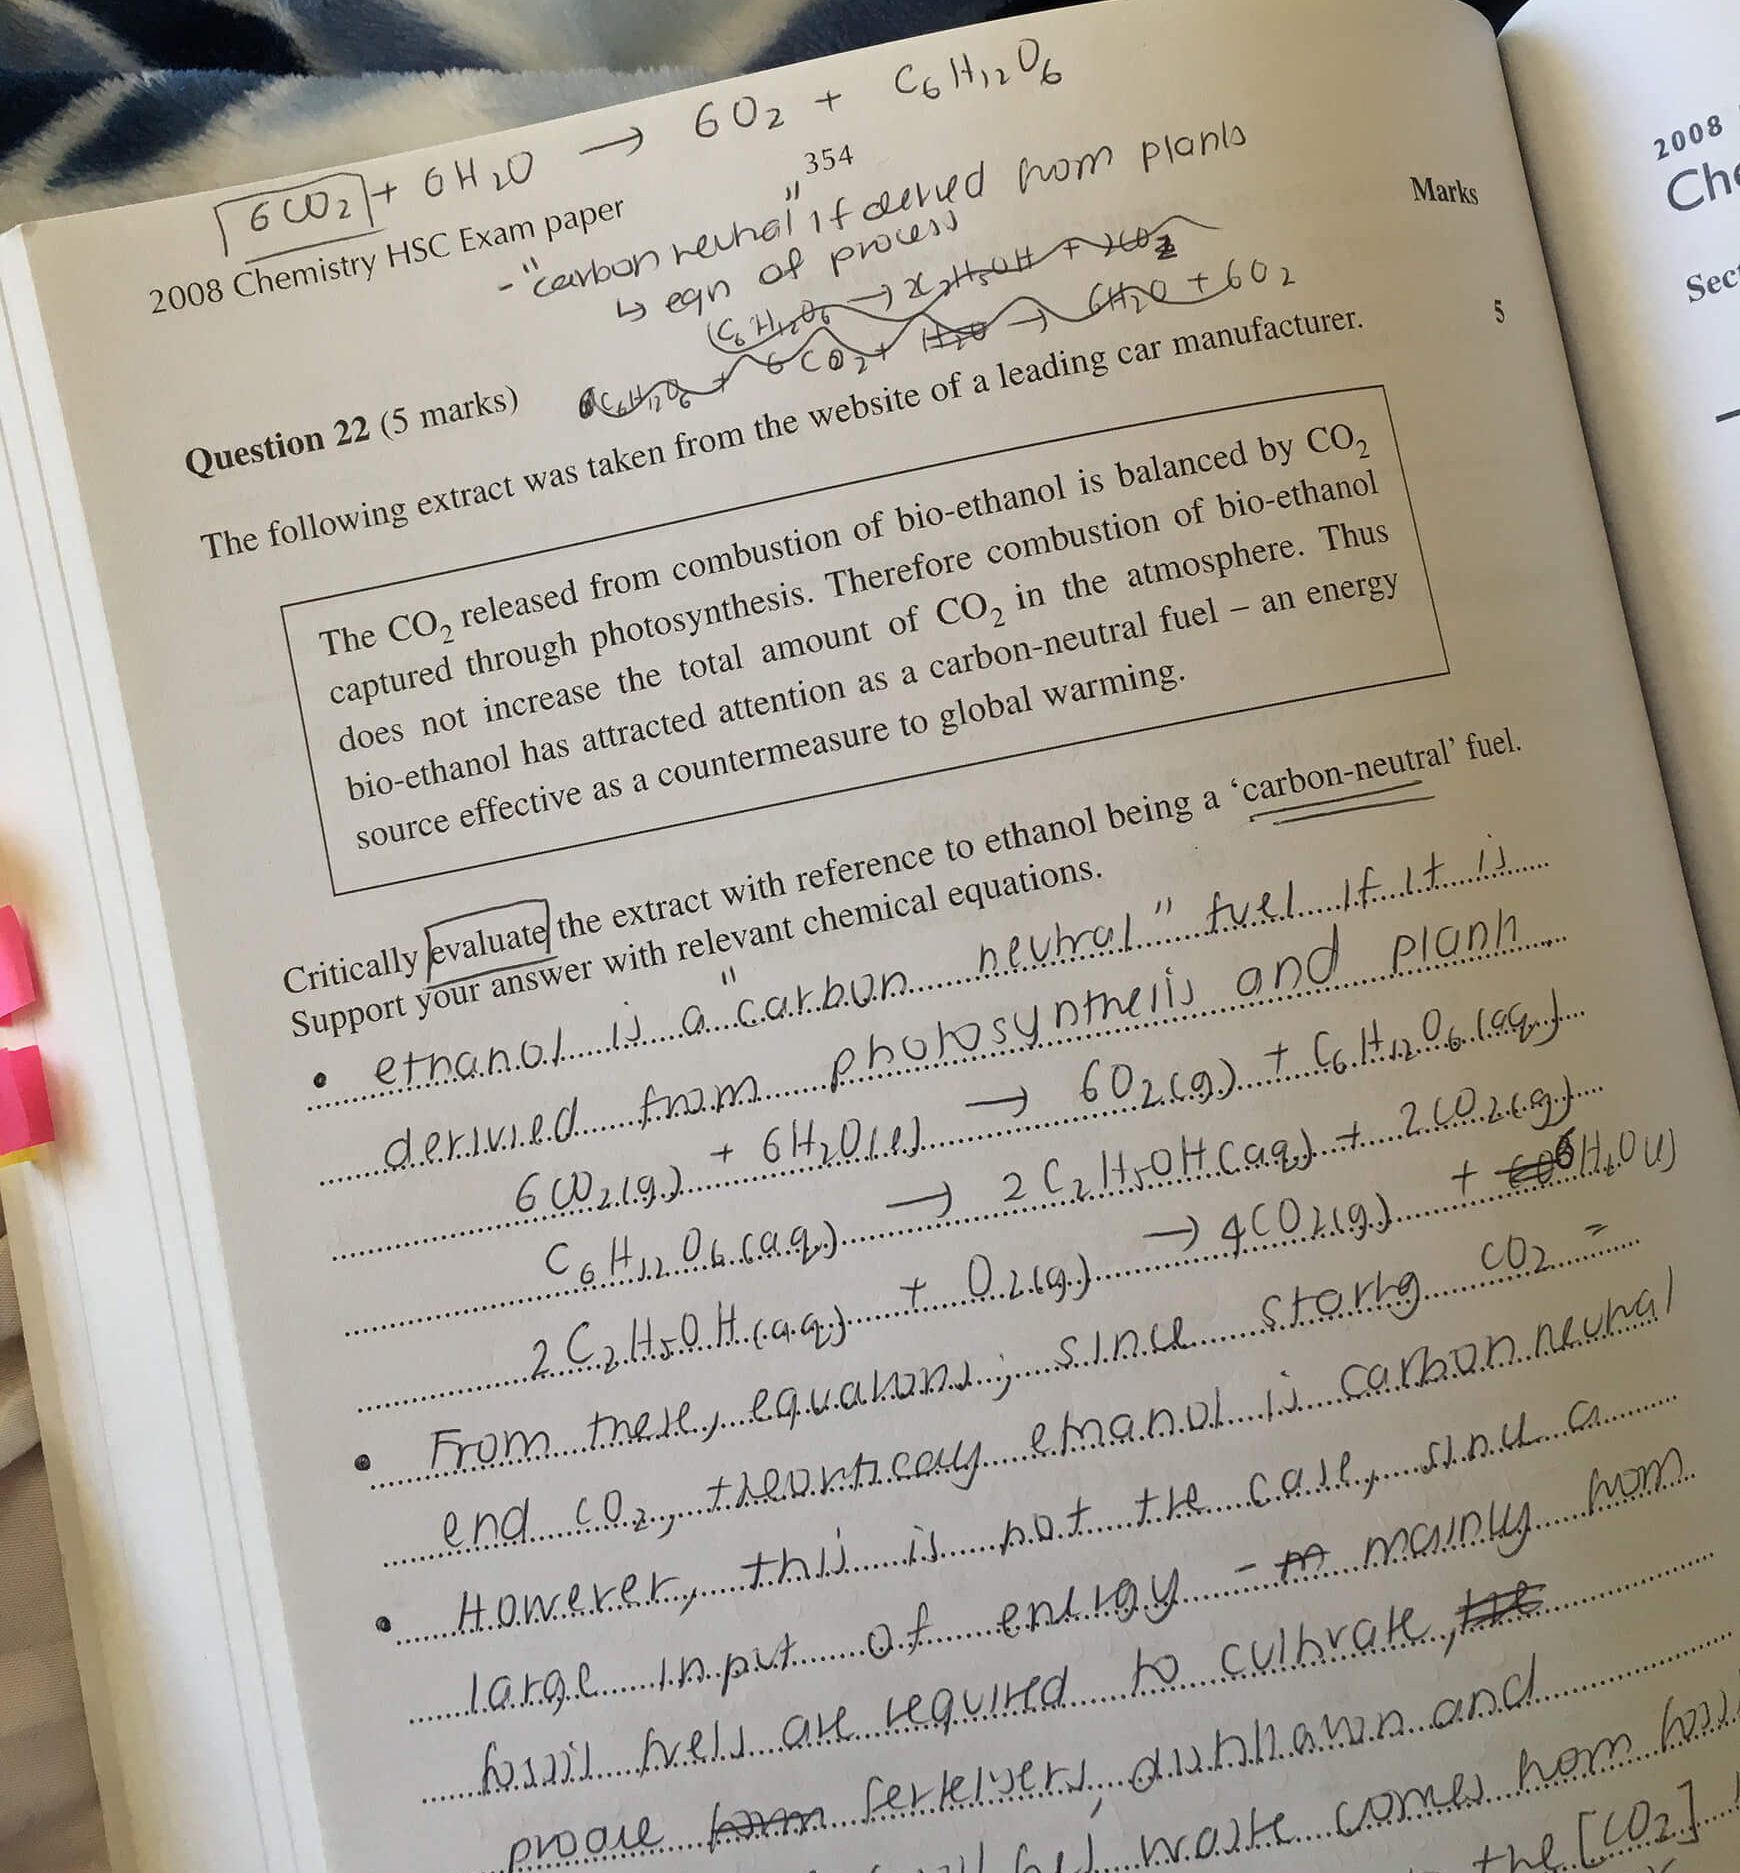 6CO₂ + 6H₂O → 6O₂ + C₆H₁₂O₆
354
2008 Chemistry HSC Exam paper
Marks
- "carbon neutral" if derived from plants
↳ eqn of process
C₆H₁₂O₆ → 2C₂H₅OH + 2CO₂
C₆H₁₂O₆ + 6CO₂ + H₂O → 6H₂O + 6O₂
Question 22 (5 marks)
5
The following extract was taken from the website of a leading car manufacturer.
The CO₂ released from combustion of bio-ethanol is balanced by CO₂
captured through photosynthesis. Therefore combustion of bio-ethanol
does not increase the total amount of CO₂ in the atmosphere. Thus
bio-ethanol has attracted attention as a carbon-neutral fuel – an energy
source effective as a countermeasure to global warming.
Critically evaluate the extract with reference to ethanol being a ‘carbon-neutral’ fuel.
Support your answer with relevant chemical equations.
• ethanol is a "carbon neutral" fuel if it is
derivied from photosynthesis and plants
6CO₂(g) + 6H₂O(l) → 6O₂(g) + C₆H₁₂O₆(aq)
C₆H₁₂O₆(aq) → 2C₂H₅OH(aq) + 2CO₂(g)
2C₂H₅OH(aq) + O₂(g) → 4CO₂(g) + 6H₂O(l)
• From these, equations, since starting CO₂ =
end CO₂, theorticaly ethanol is carbon neutral
• However, this is not the case, since a
large input of energy - mainly from
fossil fuels are required to cultivate, the
fertelisers, distillation and
waste comes from
the [CO₂]
2008
Che
Sect